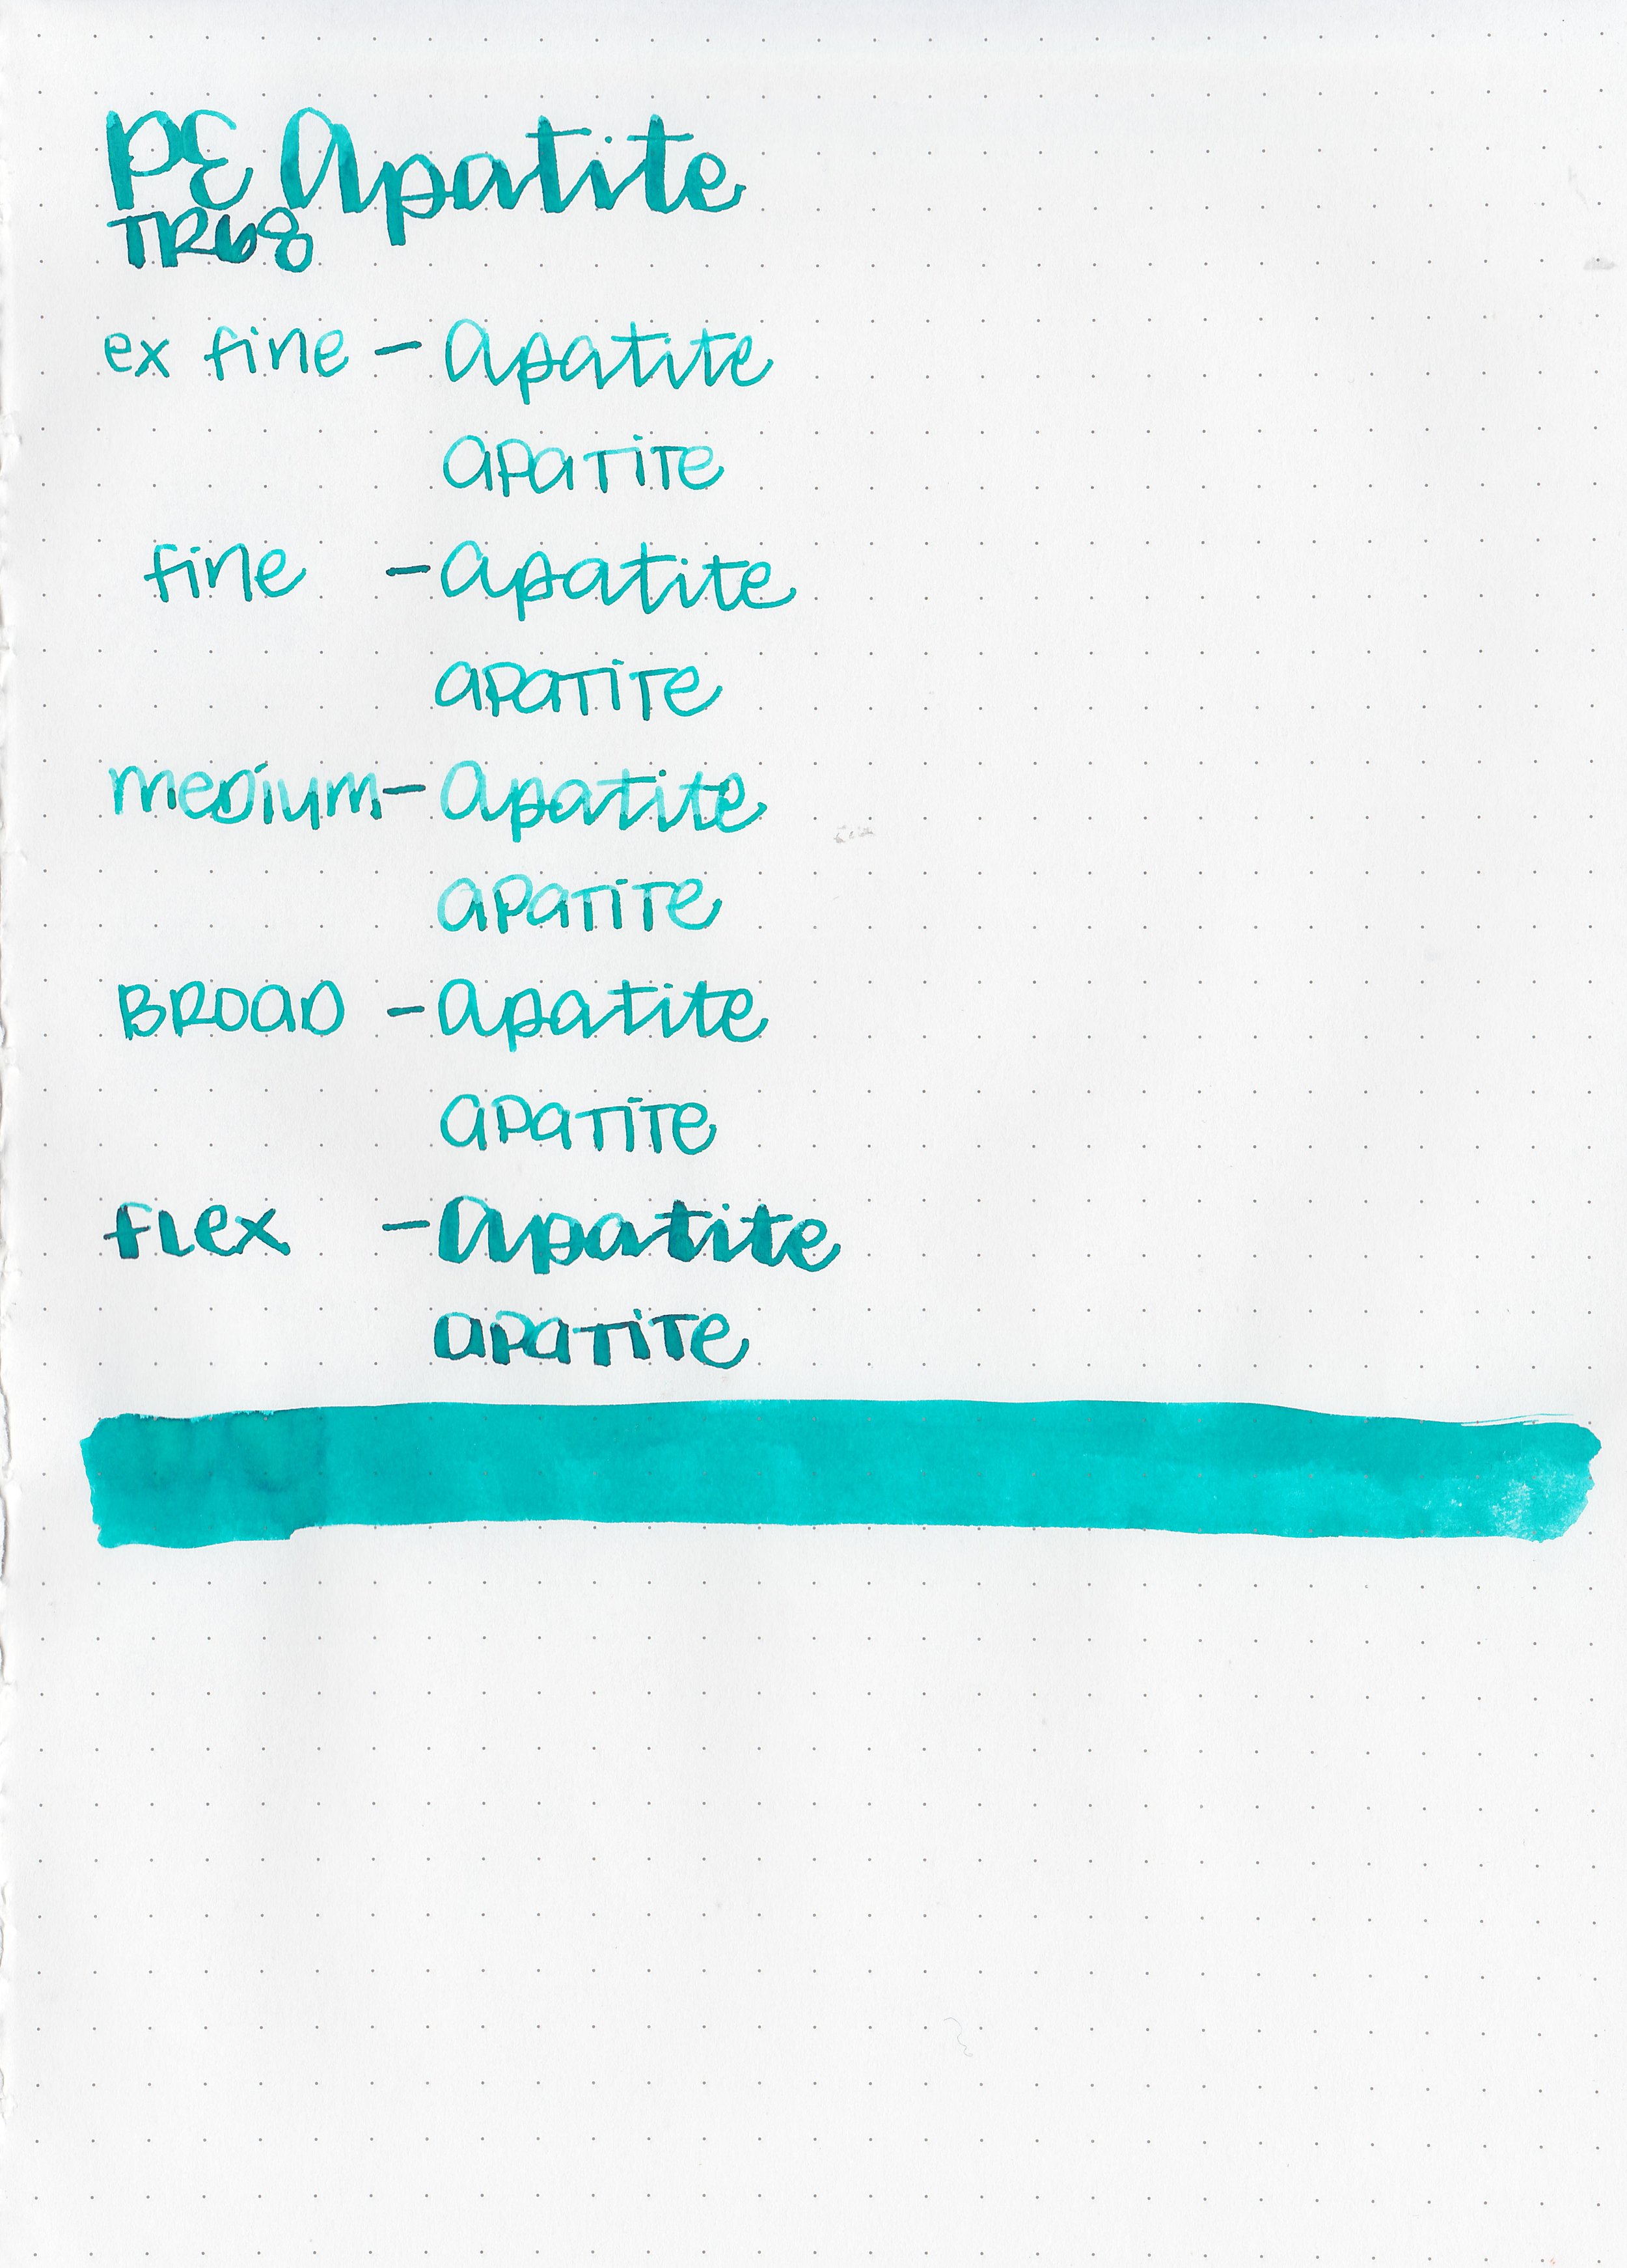 PE Apatite
TR68
ex fine - Apatite
apatite
fine - Apatite
apatite
medium - Apatite
apatite
BROAD - Apatite
apatite
flex - Apatite
apatite